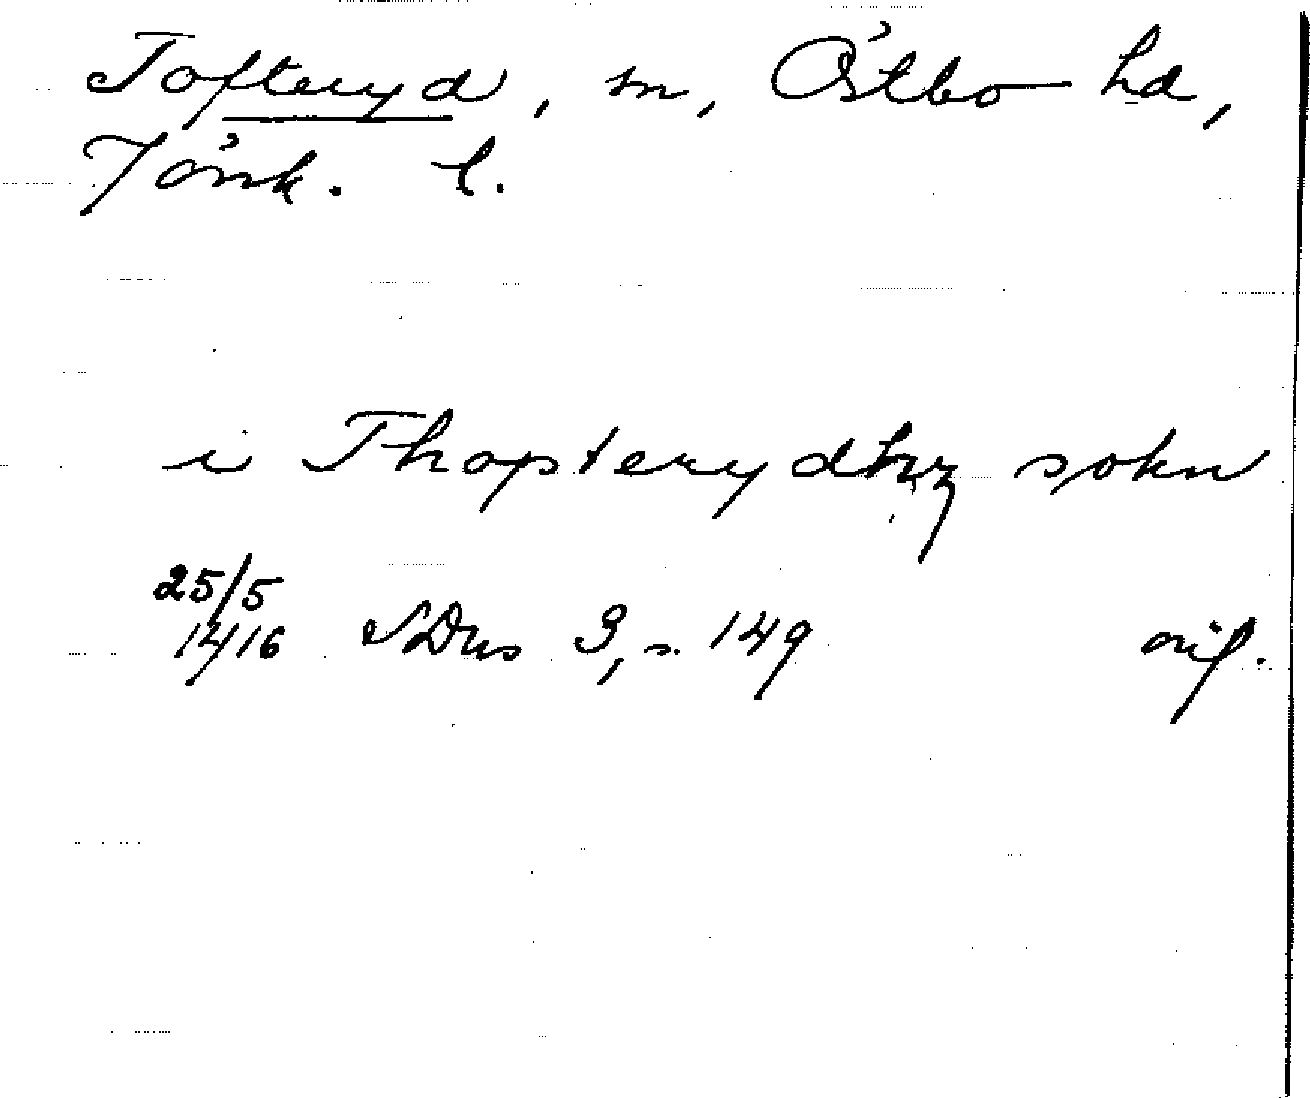 Tofteryd, sn, Östbo hd,
Jönk. l.
i Thopterydhz sokn
25/5
1416 SDns 3, s. 149 orig.